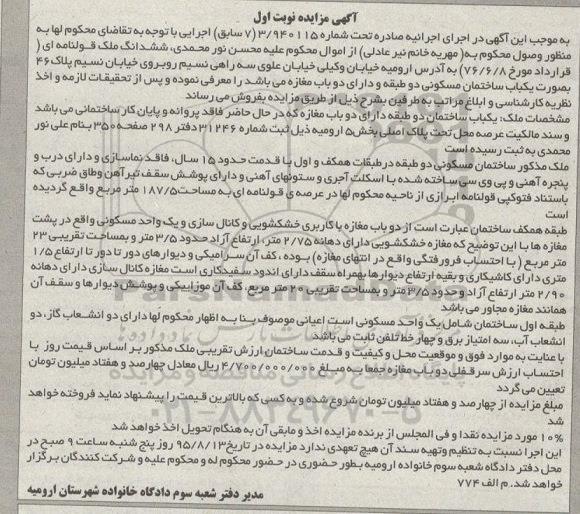 آگهی مزایده نوبت اول
به موجب این آگهی در اجرای اجرائیه صادره تحت شماره ۳/۹۴۰۱۱۵(۷ سابق) اجرایی با توجه به تقاضای محکوم لها به
منظور وصول محکوم به( مهریه خانم نیر عادلی) از اموال محکوم علیه محسن نور محمدی، ششدانگ ملک قولنامه ای (
قرارداد مورخ ۷۶/۶/۸) به آدرس ارومیه خیابان وکیلی خیابان علوی سه راهی نسیم روبروی خیابان نسیم پلاک۴۶
بصورت یکباب ساختمان مسکونی دو طبقه و دارای دو باب مغازه می باشد را معرفی نموده و پس از تحقیقات لازمه و اخذ
نظریه کارشناسی و ابلاغ مراتب به طرفین بشرح ذیل از طریق مزایده بفروش می رساند
مشخصات ملک: یکباب ساختمان دو طبقه دارای دو باب مغازه که در حال حاضر فاقد پروانه و پایان کار ساختمانی می باشد
و سند مالکیت عرصه محل تحت پلاک اصلی بخش۵ ارومیه ذیل ثبت شماره ۳۱۲۴۶ دفتر ۲۹۸ صفحه ۳۵۰ بنام علی نور
محمدی به ثبت رسیده است
ملک مذکور ساختمان مسکونی دو طبقه در طبقات همکف و اول با قدمت حدود ۱۵ سال، فاقد نماسازی و دارای درب و
پنجره آهنی و پی وی سی ساخته شده با اسکلت آجری و ستونهای آهنی و دارای پوشش سقف تیرآهن وطاق ضربی که
باستناد فتوکپی قولنامه ابرازی از ناحیه محکوم لها در عرصه ی قولنامه ای به مساحت۱۸۷/۵ متر مربع واقع گردیده
است
طبقه همکف ساختمان عبارت است از دو باب مغازه با کاربری خشکشویی و کانال سازی و یک واحد مسکونی واقع در پشت
مغازه ها با این توضیح که مغازه خشکشویی دارای دهانه ۲/۷۵ متر، ارتفاع آزاد حدود ۳/۵ متر و بمساحت تقریبی ۲۳
متر مربع ( با احتساب فرورفتگی واقع در انتهای مغازه) بوده، کف آن سرامیکی و دیوارهای دور تا دور تا ارتفاع ۱/۵
متری دارای کاشیکاری و بقیه ارتفاع دیوارها بهمراه سقف دارای اندود سفیدکاری است مغازه کانال سازی دارای دهانه
۲/۹۰ متر ارتفاع آزاد و حدود ۳/۵متر و بمساحت تقریبی ۲۰ متر مربع، کف آن موزاییکی و پوشش دیوارها و سقف آن
همانند مغازه مجاور می باشد
طبقه اول ساختمان شامل یک واحد مسکونی است اعیانی موصوف بنا به اظهار محکوم لها دارای دو انشعاب گاز، دو
انشعاب آب، سه امتیاز برق و چهار خط تلفن ثابت می باشد
با عنایت به موارد فوق و موقعیت محل و کیفیت و قدمت ساختمان ارزش تقریبی ملک مذکور بر اساس قیمت روز با
احتساب ارزش سرقفلی دو باب مغازه جمعا به مبلغ ۴/۷۰۰/۰۰۰/۰۰۰ ریال معادل چهارصد و هفتاد میلیون تومان
تعیین می گردد
مبلغ مزایده از چهارصد و هفتاد میلیون تومان شروع شده و به کسی که بالاترین قیمت را پیشنهاد نماید فروخته خواهد
شد
۱۰% مورد مزایده نقدا و فی المجلس از برنده مزایده اخذ و مابقی آن به هنگام تحویل اخذ خواهد شد
این اجرا نسبت به تنظیم وتهیه سند آن هیچ تعهدی ندارد مزایده در تاریخ۹۵/۸/۱۳ روز پنج شنبه ساعت ۹ صبح در
محل دفتر دادگاه شعبه سوم خانواده ارومیه بطور حضوری در حضور محکوم له و محکوم علیه و شرکت کنندگان برگزار
خواهد شد. م الف ۷۷۴
مدیر دفتر شعبه سوم دادگاه خانواده شهرستان ارومیه